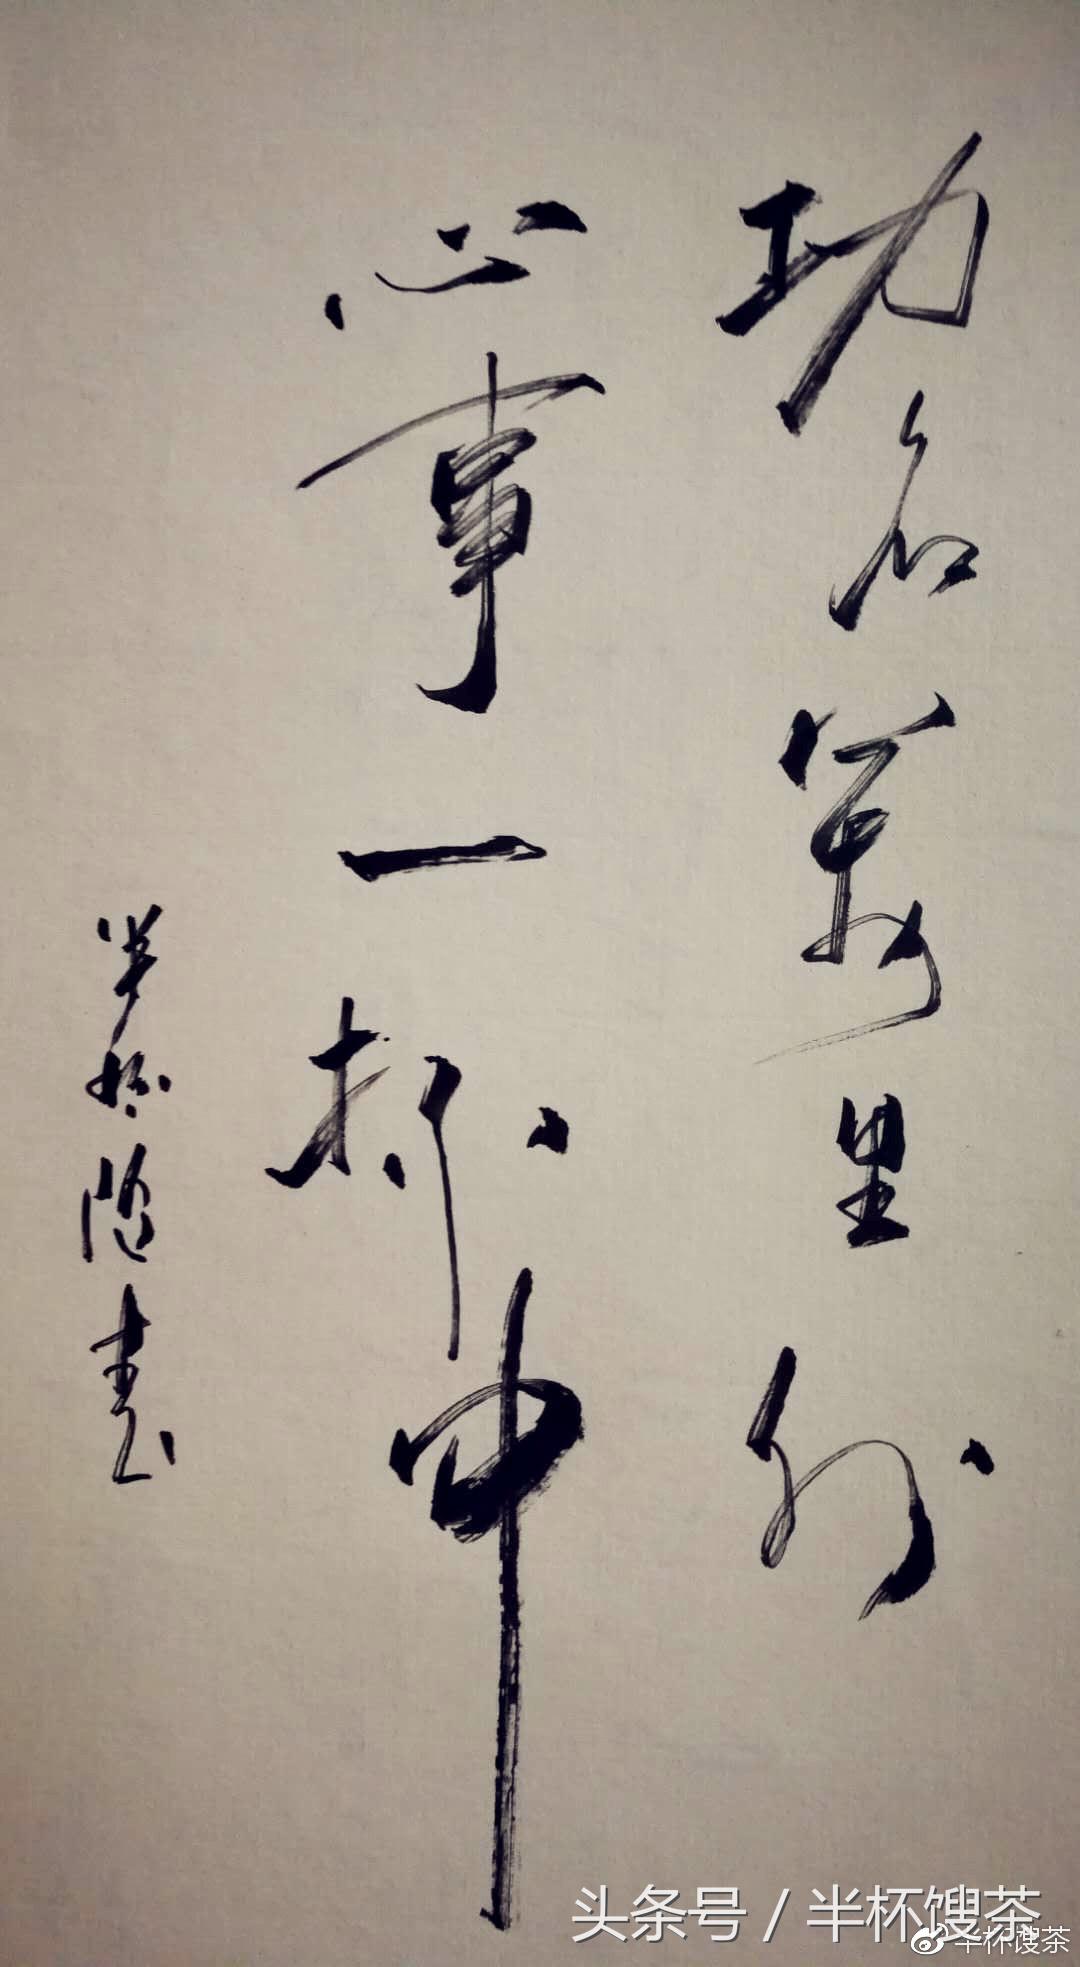 功名萬里外
心事一杯中
半杯随書
头条号 / 半杯馊茶
半杯馊茶